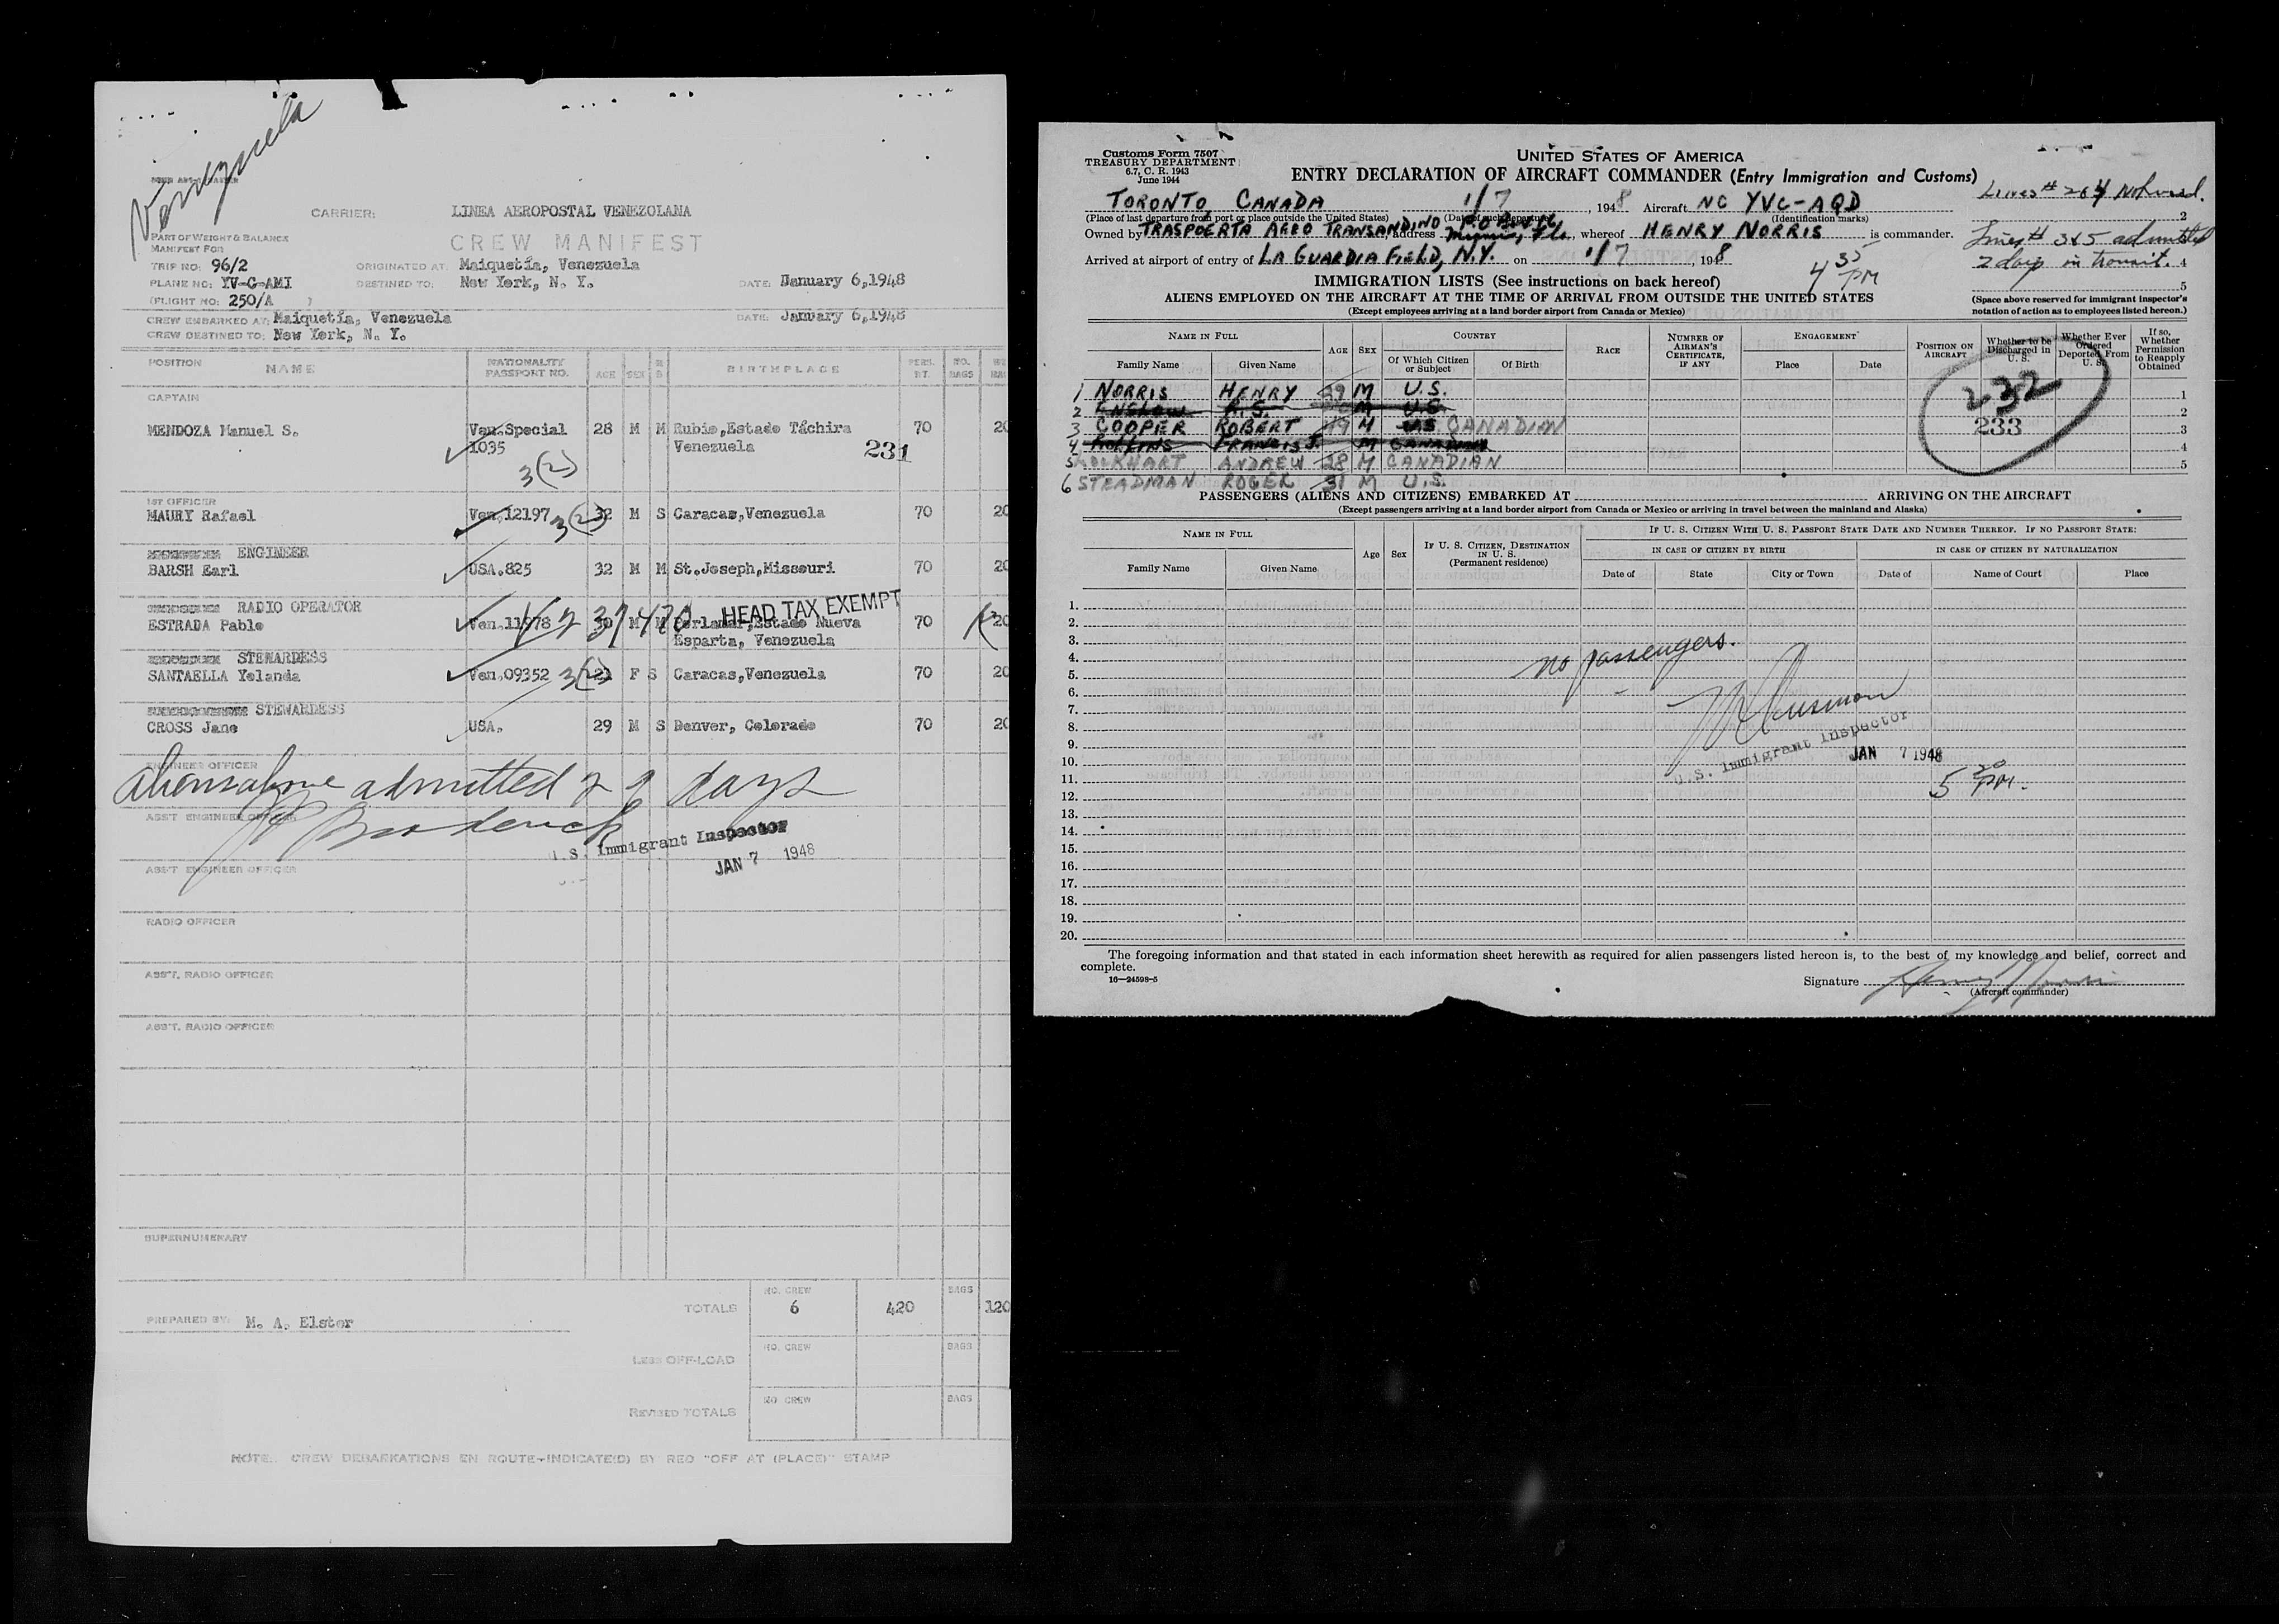 Venezuela
CARRIER: LINEA AEROPOSTAL VENEZOLANA
CREW MANIFEST
PART OF WEIGHT & BALANCE
MANIFEST FOR
TRIP NO: 96/2 ORIGINATED AT: Maiquetía, Venezuela
PLANE NO: YV-C-AMI DESTINED TO: New York, N. Y. DATE: January 6,1948
(FLIGHT NO: 250/A )
CREW EMBARKED AT: Maiquetía, Venezuela DATE: January 6,1948
CREW DESTINED TO: New York, N. Y.
POSITION NAME NATIONALITY PASSPORT NO. AGE SEX BIRTHPLACE PERS. WT. NO. BAGS
CAPTAIN
MENDOZA Manuel S. Ven.Special 28 M M Rubio,Estado Táchira 70 20
1035 Venezuela 231
3(2)
1ST OFFICER
MAURY Rafael Ven.12197 3(2) 32 M S Caracas,Venezuela 70 20
ENGINEER
BARSH Earl USA.825 32 M M St.Joseph,Missouri 70 20
RADIO OPERATOR HEAD TAX EXEMPT
ESTRADA Pablo Ven.11978 30 M M Porlamar,Estado Nueva 70 20
Esparta, Venezuela
STEWARDESS
SANTAELLA Yolanda Ven.09352 3(2) 22 F S Caracas,Venezuela 70 20
STEWARDESS
CROSS Jane USA. 29 M S Denver, Colorado 70 20
ENGINEER OFFICER
aliens above admitted 29 days
ASS'T ENGINEER OFFICER
Broderick
U.S. Immigrant Inspector
JAN 7 1948
ASS'T ENGINEER OFFICER
RADIO OFFICER
ASS'T. RADIO OFFICER
ASS'T. RADIO OFFICER
SUPERNUMERARY
NO. CREW BAGS
TOTALS 6 420 120
PREPARED BY: M. A. Elster
NO. CREW BAGS
LESS OFF-LOAD
NO CREW BAGS
REVISED TOTALS
NOTE: CREW DEBARKATIONS EN ROUTE-INDICATE(D) BY RED "OFF AT (PLACE)" STAMP
Customs Form 7507
TREASURY DEPARTMENT
6.7, C. R. 1943
June 1944
UNITED STATES OF AMERICA
ENTRY DECLARATION OF AIRCRAFT COMMANDER (Entry Immigration and Customs)
TORONTO, CANADA 1/7, 1948 Aircraft NC YVC-AQD
(Place of last departure from port or place outside the United States) (Date of such departure) (Identification marks)
Owned by TRASPOERTA AERO TRANSANDINO address Miami, Fla., whereof HENRY NORRIS is commander.
Arrived at airport of entry of LA GUARDIA FIELD, N.Y. on 1/7, 1948
4 35 PM
Lines # 2 & 4 Not used.
2
Lines # 3 & 5 admitted
2 days in transit. 4
5
(Space above reserved for immigrant inspector's notation of action as to employees listed hereon.)
IMMIGRATION LISTS (See instructions on back hereof)
ALIENS EMPLOYED ON THE AIRCRAFT AT THE TIME OF ARRIVAL FROM OUTSIDE THE UNITED STATES
(Except employees arriving at a land border airport from Canada or Mexico)
NAME IN FULL AGE SEX COUNTRY RACE NUMBER OF AIRMAN'S CERTIFICATE, IF ANY ENGAGEMENT POSITION ON AIRCRAFT Whether to be Discharged in U. S. Whether Ever Ordered Deported From U. S. If so, Whether Permission to Reapply Obtained
Family Name Given Name Of Which Citizen or Subject Of Birth Place Date
1 NORRIS HENRY 39 M U.S. 1
2 ENSLOW R.S. M U.S. 2
3 COOPER ROBERT 29 M U.S. CANADIAN 3
4 ROLLINS FRANCIS J. M CANADIAN 4
5 LOCKHART ANDREW 28 M CANADIAN 5
6 STEADMAN ROGER 31 M U.S.
232
233
PASSENGERS (ALIENS AND CITIZENS) EMBARKED AT ARRIVING ON THE AIRCRAFT
(Except passengers arriving at a land border airport from Canada or Mexico or arriving in travel between the mainland and Alaska)
NAME IN FULL Age Sex IF U. S. CITIZEN, DESTINATION IN U. S. (Permanent residence) IF U. S. CITIZEN WITH U. S. PASSPORT STATE DATE AND NUMBER THEREOF. IF NO PASSPORT STATE:
IN CASE OF CITIZEN BY BIRTH IN CASE OF CITIZEN BY NATURALIZATION
Family Name Given Name Date of State City or Town Date of Name of Court Place
1.
2.
3.
4.
no passengers.
5.
6.
7.
8.
9.
U.S. Immigrant Inspector
10.
JAN 7 1948
11.
5 20 PM.
12.
13.
14.
15.
16.
17.
18.
19.
20.
The foregoing information and that stated in each information sheet herewith as required for alien passengers listed hereon is, to the best of my knowledge and belief, correct and
complete.
16—24598-5
Signature Henry Norris
(Aircraft commander)